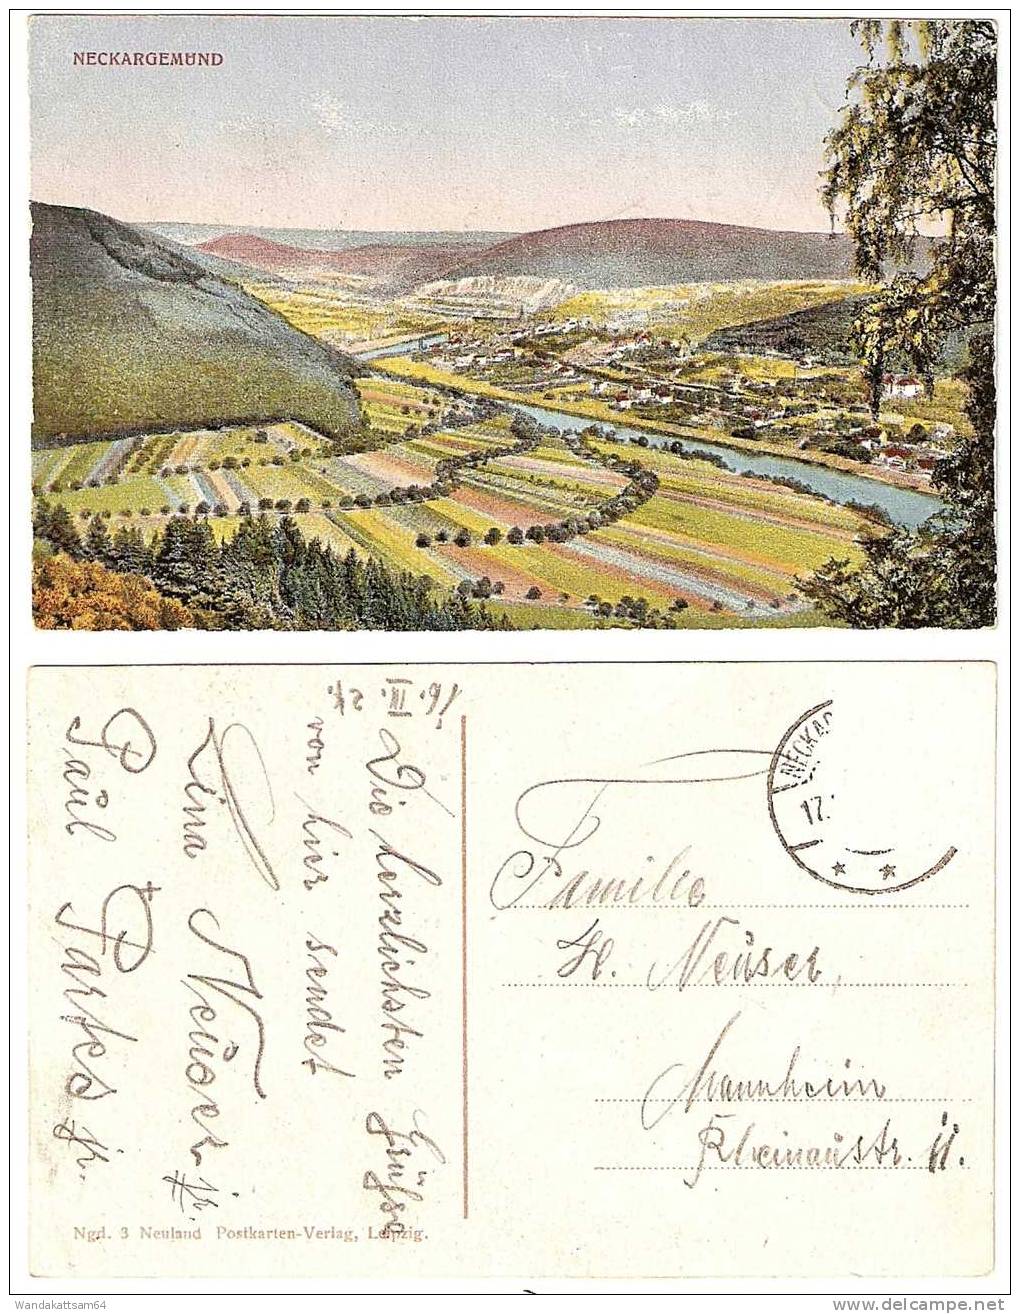 NECKARGEMÜND
16. III. 24.
Die herzlichsten Grüße
von hier sendet
Lina Neüser jr.
Paul
jr.
NECKAR
17.
Familie
H. Neüser,
Mannheim
Rheinaustr. 11.
Ngd. 3 Neuland Postkarten-Verlag, Leipzig.
Wandakattsam64
www.delcampe.net